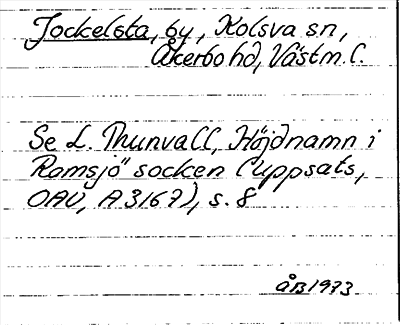 Jockelsta, by, Kolsva sn,
Åkerbo hd, Västm. l.
Se L. Thunvall, Höjdnamn i
Ramsjö socken (uppsats,
OAU, A 3167), s. 8
ÅB 1973